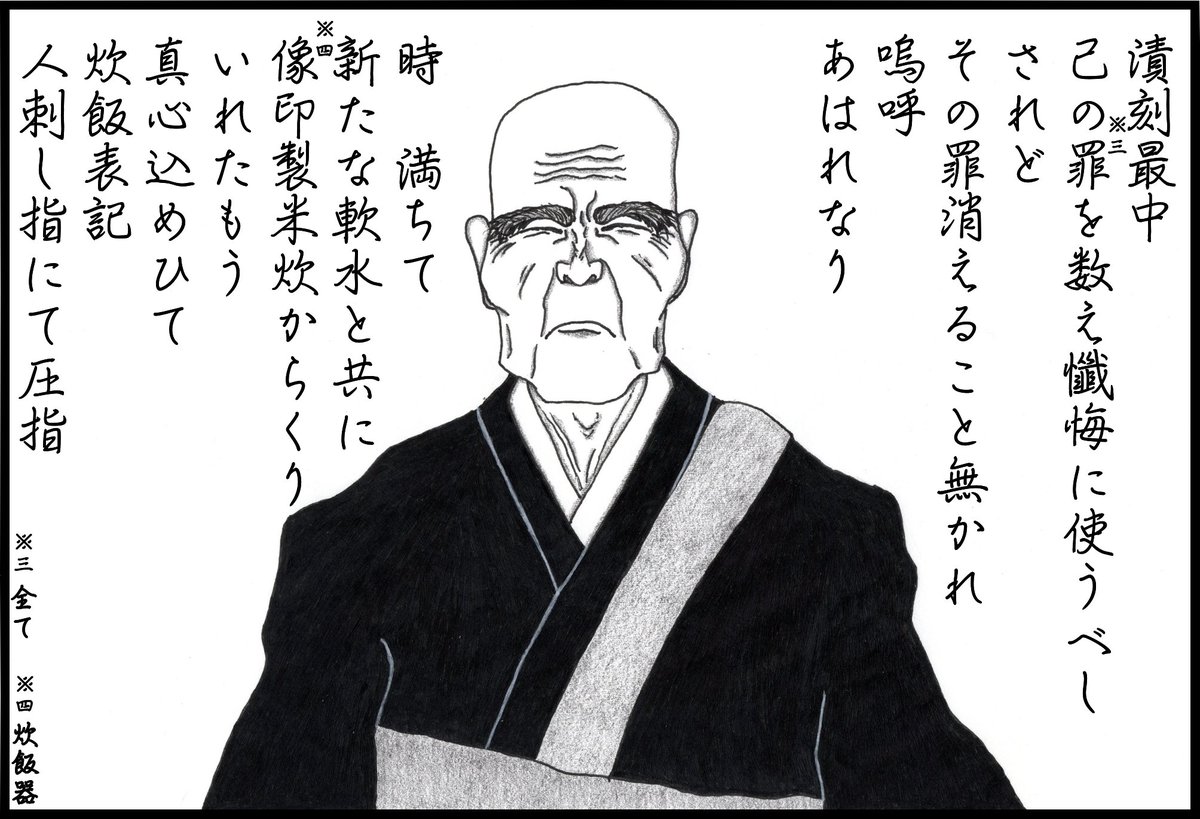 漬刻最中
己の罪※三を数え懺悔に使うべし
されど
その罪消えること無かれ
嗚呼
あはれなり
時 満ちて
新たな軟水と共に
※四像印製米炊からくり
いれたもう
真心込めひて
炊飯表記
人刺し指にて圧指
※三 全て ※四 炊飯器